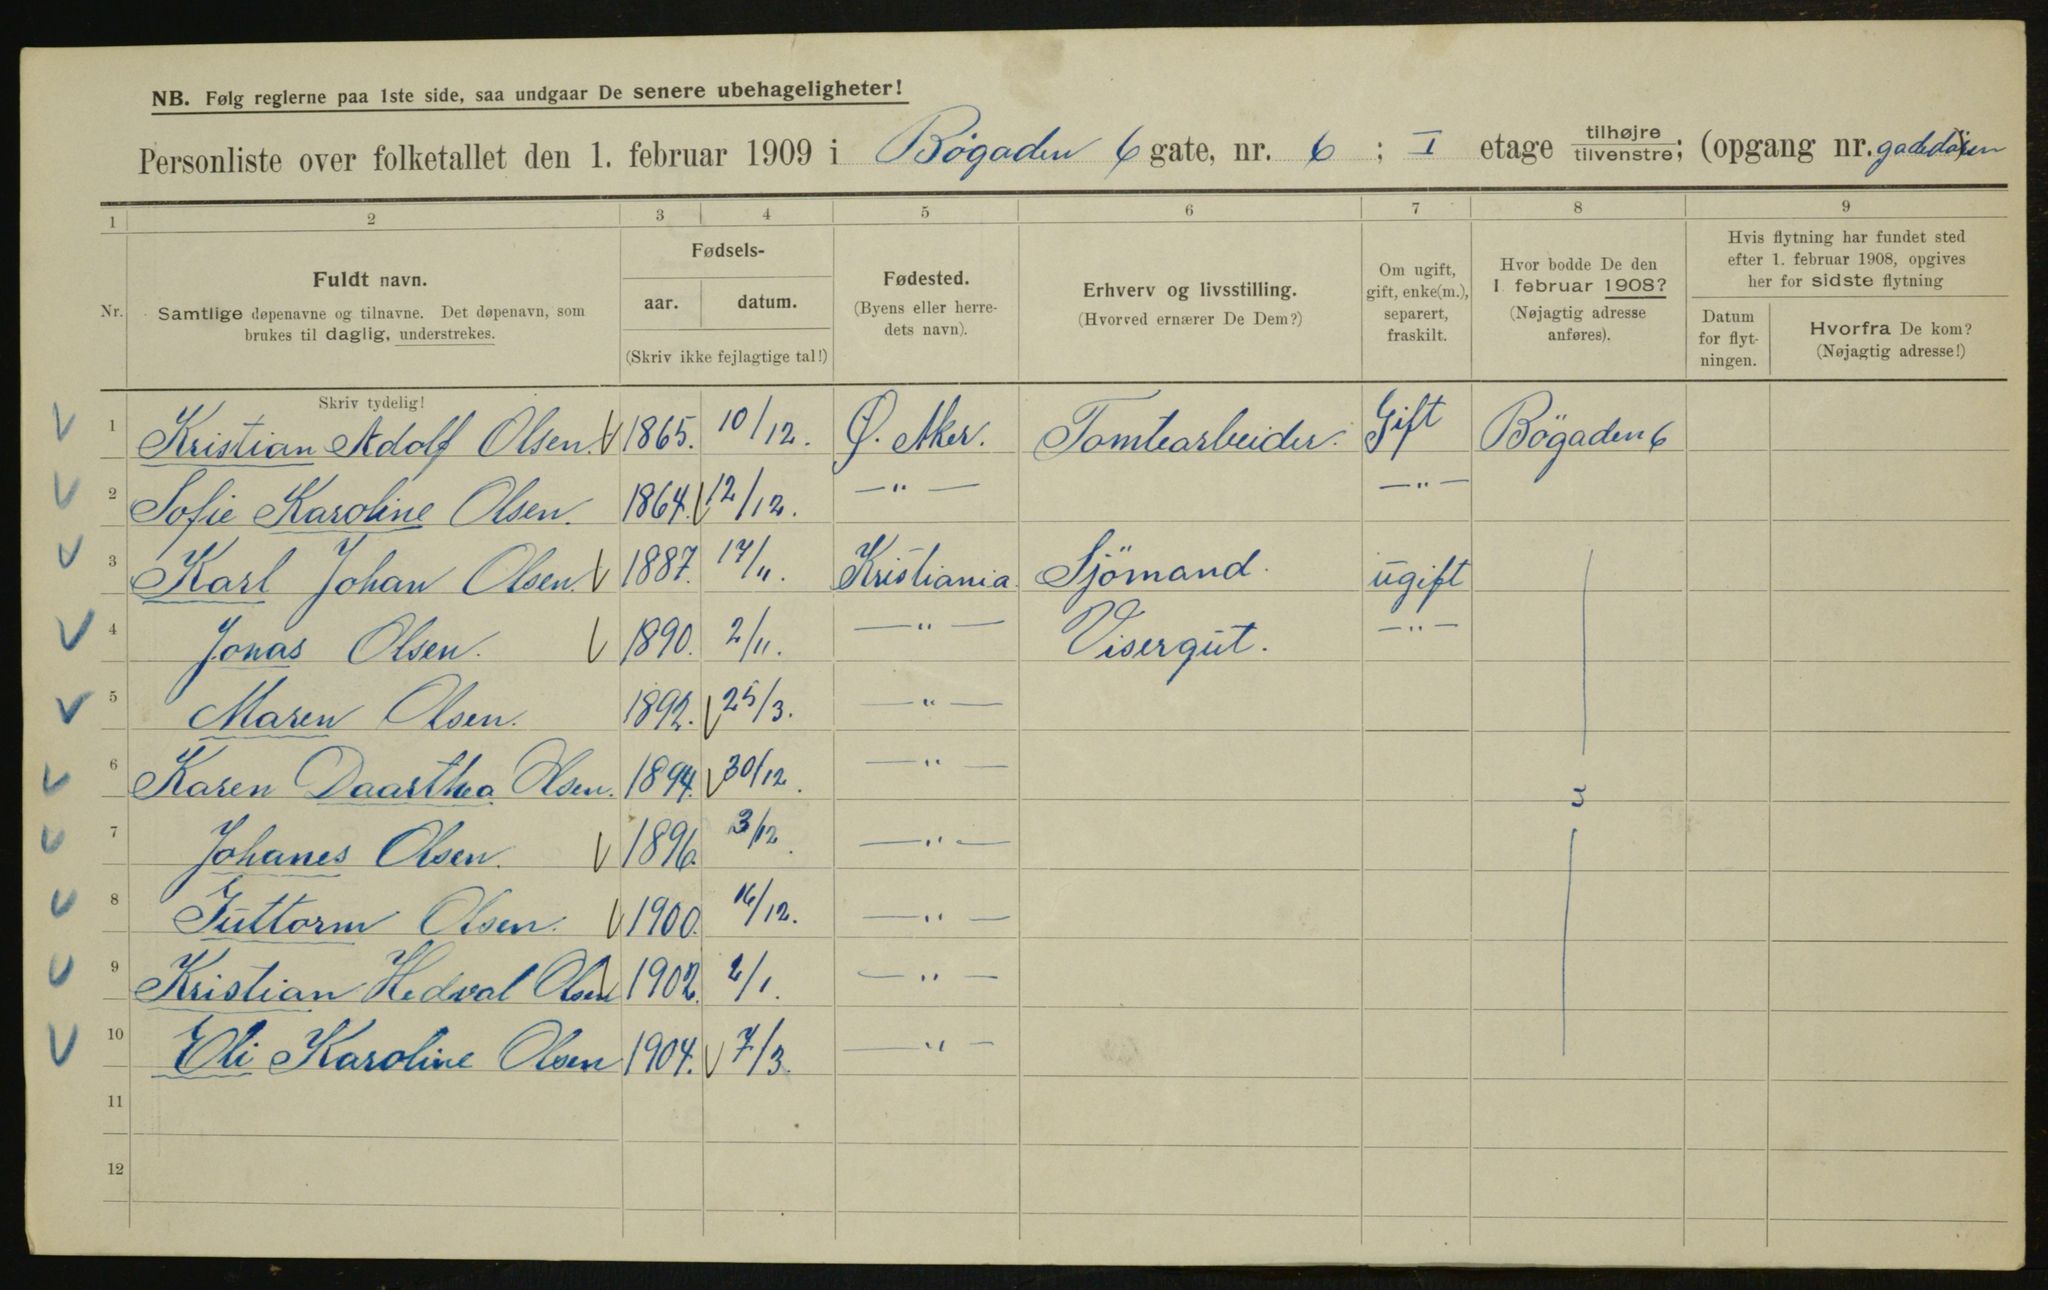 NB. Følg reglerne paa 1ste side, saa undgaar De senere ubehageligheter!
Personliste over folketallet den 1. februar 1909 i Bögaden 6 gate, nr. 6 ; I etage tilhøjre / tilvenstre; (opgang nr. gadedören
1 2 3 4 5 6 7 8 9
Nr. Fuldt navn. Samtlige døpenavne og tilnavne. Det døpenavn, som brukes til daglig, understrekes. Skriv tydelig!
Fødsels- aar. datum. (Skriv ikke fejlagtige tal!)
Fødested. (Byens eller herredets navn).
Erhverv og livsstilling. (Hvorved ernærer De Dem?)
Om ugift, gift, enke(m.), separert, fraskilt.
Hvor bodde De den 1 februar 1908? (Nøjagtig adresse anføres).
Hvis flytning har fundet sted efter 1. februar 1908, opgives her for sidste flytning
Datum for flytningen.
Hvorfra De kom? (Nøjagtig adresse!)
1 Kristian Adolf Olsen. 1865. 10/12. Ø. Aker. Tomtearbeider. Gift Bögaden 6
2 Sofie Karoline Olsen. 1864. 12/12. —"— —"—
3 Karl Johan Olsen. 1887. 17/11. Kristiania Sjömand. ugift
4 Jonas Olsen. 1890. 2/11. —"— Visergut. —"—
5 Maren Olsen. 1892. 25/3. —"—
6 Karen Daarthea Olsen. 1894. 30/12. —"—
7 Johanes Olsen. 1896. 3/12. —"—
8 Guttorm Olsen. 1900. 16/12. —"—
9 Kristian Hedval Olsen 1902. 2/1. —"—
10 Eli Karoline Olsen 1904. 7/3. —"—
11
12